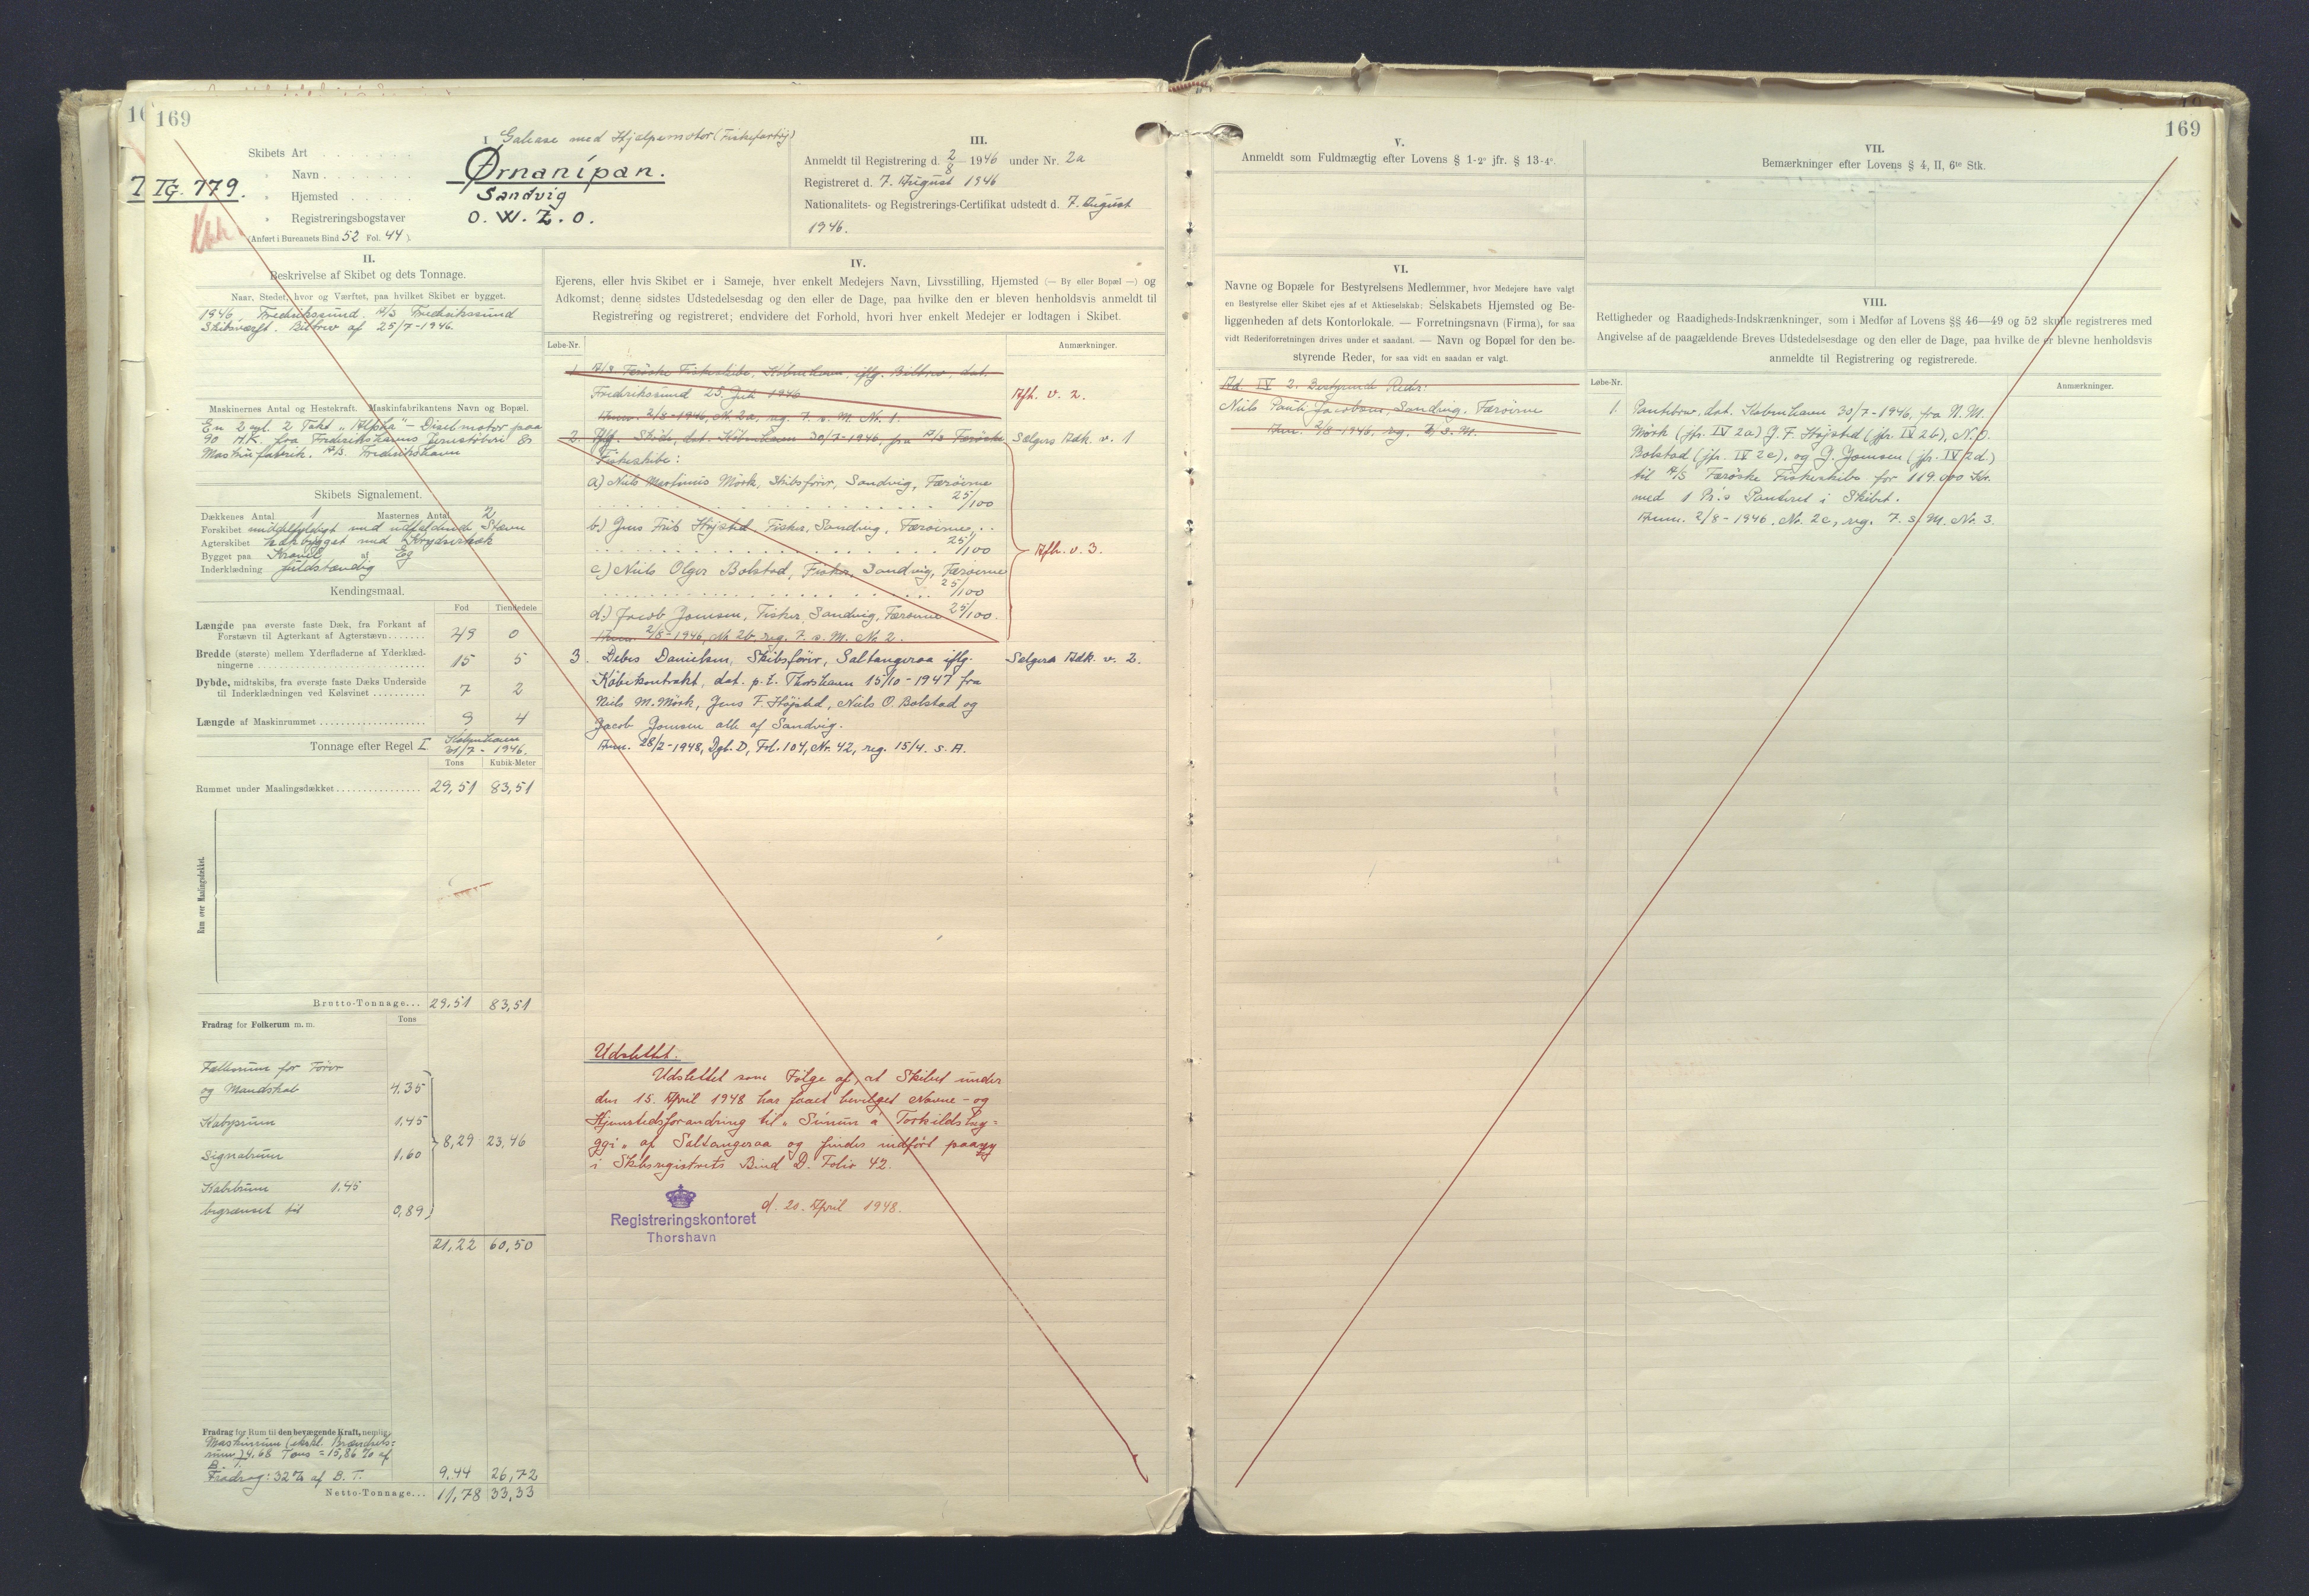 169
169
TG. 779.
I. Galease med Hjælpemotor (Fiskefartøj)
Skibets Art
" Navn
Ørnanípan.
" Hjemsted
Sandvig
" Registreringsbogstaver
O. W. Z. O.
(Anført i Bureauets Bind 52 Fol. 44).
II.
Beskrivelse af Skibet og dets Tonnage.
Naar, Stedet, hvor og Værftet, paa hvilket Skibet er bygget.
1946, Frederikssund. A/S Frederikssund
Skibsværft. Bilbrev af 25/7-1946.
Maskinernes Antal og Hestekraft. Maskinfabrikantens Navn og Bopæl.
En 2 cyl. 2 Takt "Alpha"-Dieselmotor paa
90 H.K. fra Frederikshavns Jernstöberi &
Maskinfabrik. A/S. Frederikshavn
Skibets Signalement.
Dækkenes Antal 1 Masternes Antal 2
Forskibet middelfyldigt med udfaldende Stævn
Agterskibet hækbygget med Krydserhæk
Bygget paa Kravel af Eg
Inderklædning fuldstændig
Kendingsmaal.
Fod Tiendedele
Længde paa øverste faste Dæk, fra Forkant af
Forstævn til Agterkant af Agterstævn 49 0
Bredde (største) mellem Yderfladerne af Yderklæd-
ningerne 15 5
Dybde, midtskibs, fra øverste faste Dæks Underside
til Inderklædningen ved Kølsvinet 7 2
Længde af Maskinrummet 9 4
Tonnage efter Regel I. København
31/7 - 1946.
Tons Kubik-Meter
Rummet under Maalingsdækket 29,51 83,51
Rum over Maalingsdækket.
Brutto-Tonnage... 29,51 83,51
Fradrag for Folkerum m. m. Tons
Fællesrum for Förer
og Mandskab 4,35
Kabysrum 1,45
Signalrum 1,60
8,29 23,46
Kabelrum 1,45
begrænset til 0,89
21,22 60,50
Fradrag for Rum til den bevægende Kraft, nemlig:
Maskinrum (ekskl. Brændsels=
rum) 4,68 Tons = 15,86 % af
B. T.
Fradrag: 32% af B. T. 9,44 26,72
Netto-Tonnage... 11,78 33,33
III.
Anmeldt til Registrering d. 2/8 1946 under Nr. 2a
Registreret d. 7. August 1946
Nationalitets- og Registrerings-Certifikat udstedt d. 7. August
1946.
IV.
Ejerens, eller hvis Skibet er i Sameje, hver enkelt Medejers Navn, Livsstilling, Hjemsted (— By eller Bopæl —) og
Adkomst; denne sidstes Udstedelsesdag og den eller de Dage, paa hvilke den er bleven henholdsvis anmeldt til
Registrering og registreret; endvidere det Forhold, hvori hver enkelt Medejer er lodtagen i Skibet.
Løbe-Nr. Anmærkninger.
1. A/S Færöske Fiskeskibe, København, iflg. Bilbrev, dat.
Fredrikssund 25. Juli 1946 Afh. v. 2.
Anm. 2/8-1946, Nr. 2a, reg. 7. s. M. Nr. 1.
2. Iflg. Skøde, dat. København 30/7-1946, fra A/S Færöske Sælgers Adk. v. 1
Fiskeskibe:
a) Niels Martinus Mörk, Skibsförer, Sandvig, Færöerne
25/100
b.) Jens Frits Höjsted, Fisker, Sandvig, Færöerne
25/100
Afh. v. 3.
c.) Niels Olger Bolstad, Fisker, Sandvig, Færöerne
25/100
d.) Jacob Joensen, Fisker, Sandvig, Færöerne 25/100.
Anm. 2/8-1946, Nr. 2b, reg. 7. s. M. Nr. 2.
3. Debes Danielsen, Skibsförer, Saltangeraa iflg. Sælgers Adk. v. 2.
Købekontrakt, dat. p. t. Thorshavn 15/10-1947 fra
Niels M. Mörk, Jens F. Höjsted, Niels O. Bolstad og
Jacob Joensen alle af Sandvig.
Anm. 28/2-1948, Dgb. D, Fol. 104, Nr. 42, reg. 15/4. s. A.
Udslettet.
Udslettet som Følge af, at Skibet under
den 15. April 1948 har faaet bevilget Navne- og
Hjemstedsforandring til
af Saltangeraa og findes indført paany
i Skibsregistrets Bind D. Folio 42.
d. 20. April 1948.
Registreringskontoret
Thorshavn
V.
Anmeldt som Fuldmægtig efter Lovens § 1-2° jfr. § 13-4°.
VI.
Navne og Bopæle for Bestyrelsens Medlemmer, hvor Medejere have valgt
en Bestyrelse eller Skibet ejes af et Aktieselskab; Selskabets Hjemsted og Be-
liggenheden af dets Kontorlokale. — Forretningsnavn (Firma), for saa
vidt Rederiforretningen drives under et saadant. — Navn og Bopæl for den be-
styrende Reder, for saa vidt en saadan er valgt.
Ad. IV 2. Bestyrende Reder:
Niels Pauli Jacobsen, Sandvig, Færöerne
Anm. 2/8-1946, reg. 7. s. M.
VII.
Bemærkninger efter Lovens § 4, II, 6te Stk.
VIII.
Rettigheder og Raadigheds-Indskrænkninger, som i Medfør af Lovens §§ 46—49 og 52 skulle registreres med
Angivelse af de paagældende Breves Udstedelsesdage og den eller de Dage, paa hvilke de er blevne henholdsvis
anmeldte til Registrering og registrerede.
Løbe-Nr. Anmærkninger.
1. Pantebrev, dat. København 30/7-1946, fra N. M.
Mörk (jfr. IV 2a) J. F. Höjsted (jfr. IV 2b), N. O.
Bolstad (jfr. IV 2c), og J. Joensen (jfr. IV 2d)
til A/S Færøske Fiskeskibe for 119.000 Kr.
med 1 Pr.'s Panteret i Skibet.
Anm. 2/8-1946, Nr. 2c, reg. 7. s. M. Nr. 3.